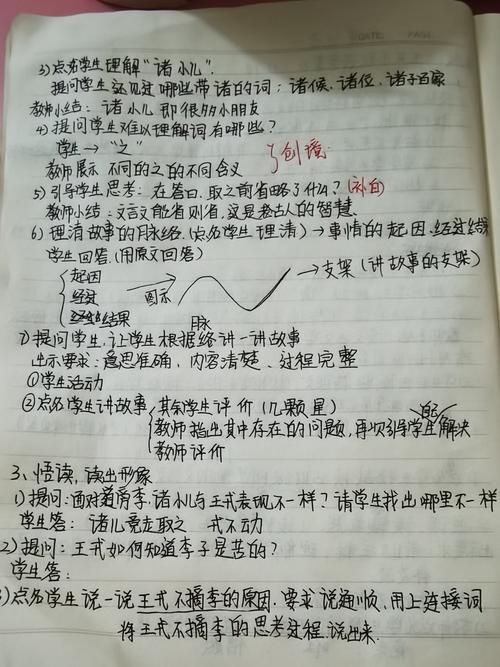 DATE PAGE
3)点名学生理解“诸小儿”.
提问学生还见过哪些带诸的词:诸候、诸位、诸子百家
教师小结:诸小儿即很多小朋友
4)提问学生难以理解词有哪些?
学生→“之”
教师展示不同的之的不同含义
创境
5)引导学生思考:在答曰、取之前省略了什么?(补白)
教师小结:文言文能省则省,这是我古人的智慧.
6)理清故事的脉络.(点名学生理清)→事情的起因、经过结果
学生回答.(用原文回答)
起因
经过
结果
图示
脉
→支架(讲故事的支架)
7)提问学生,让学生根据络讲一讲故事
出示要求:意思准确,内容清楚、过程完整
①学生活动
②点名学生讲故事
其余学生评价(几颗星)
教师指出其中存在的问题,再次引导学生自己解决
教师评价
3、悟读,读出形象
1)提问:面对道旁李,诸小儿与王戎表现不一样?请学生找出哪里不一样
学生答:诸儿竞走取之 戎不动
2)提问:王戎如何知道李子是苦的?
学生答:
3)点名学生说一说王戎不摘李的原因.要求说通顺,用上连接词
将王戎不摘李的思考过程.说出来.